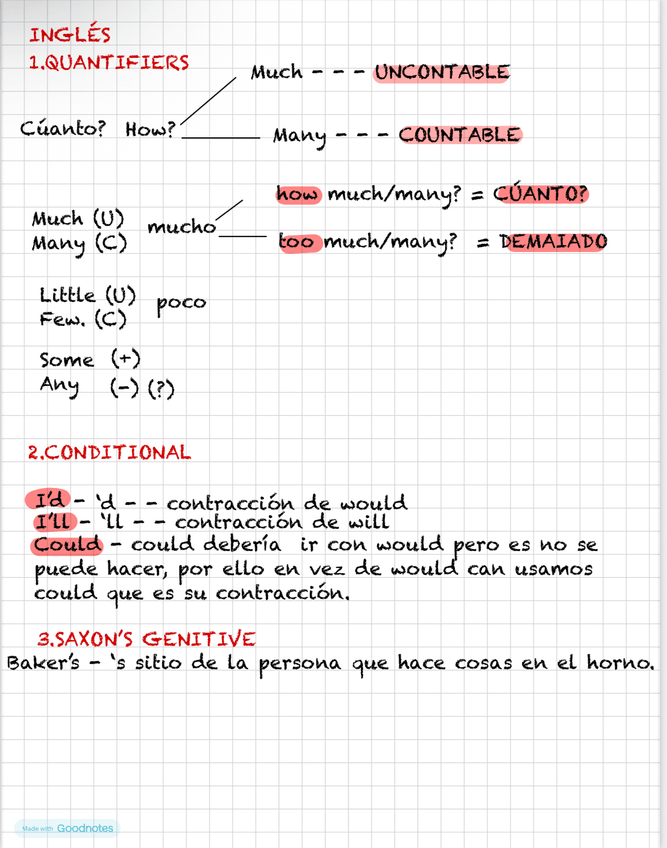 INGLÉS
1.QUANTIFIERS
Much - - - UNCONTABLE
Cúanto? How?
Many - - - COUNTABLE
how much/many? = CÚANTO?
Much (U)
Many (C)
mucho
too much/many? = DEMAIADO
Little (U)
Few. (C)
poco
Some (+)
Any (-) (?)
2.CONDITIONAL
I'd - 'd - - contracción de would
I'll - 'll - - contracción de will
Could - could debería ir con would pero es no se
puede hacer, por ello en vez de would can usamos
could que es su contracción.
3.SAXON'S GENITIVE
Baker's - 's sitio de la persona que hace cosas en el horno.
Made with Goodnotes